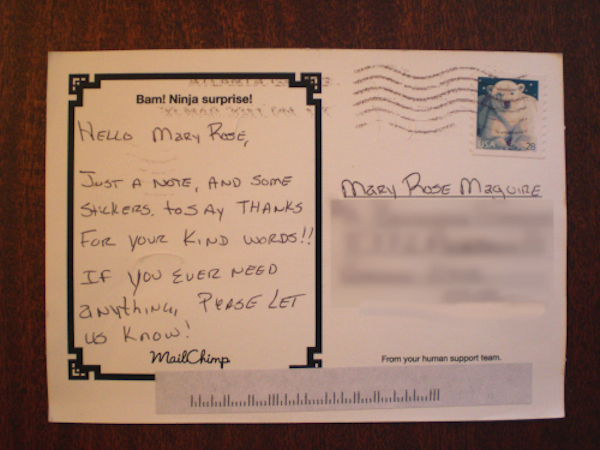 Bam! Ninja surprise!
Hello Mary Rose,
Just a note, and some
stickers. to say thanks
for your kind words!!
If you ever need
anything, please let
us know!
MailChimp
USA 28
Mary Rose Maguire
From your human support team.